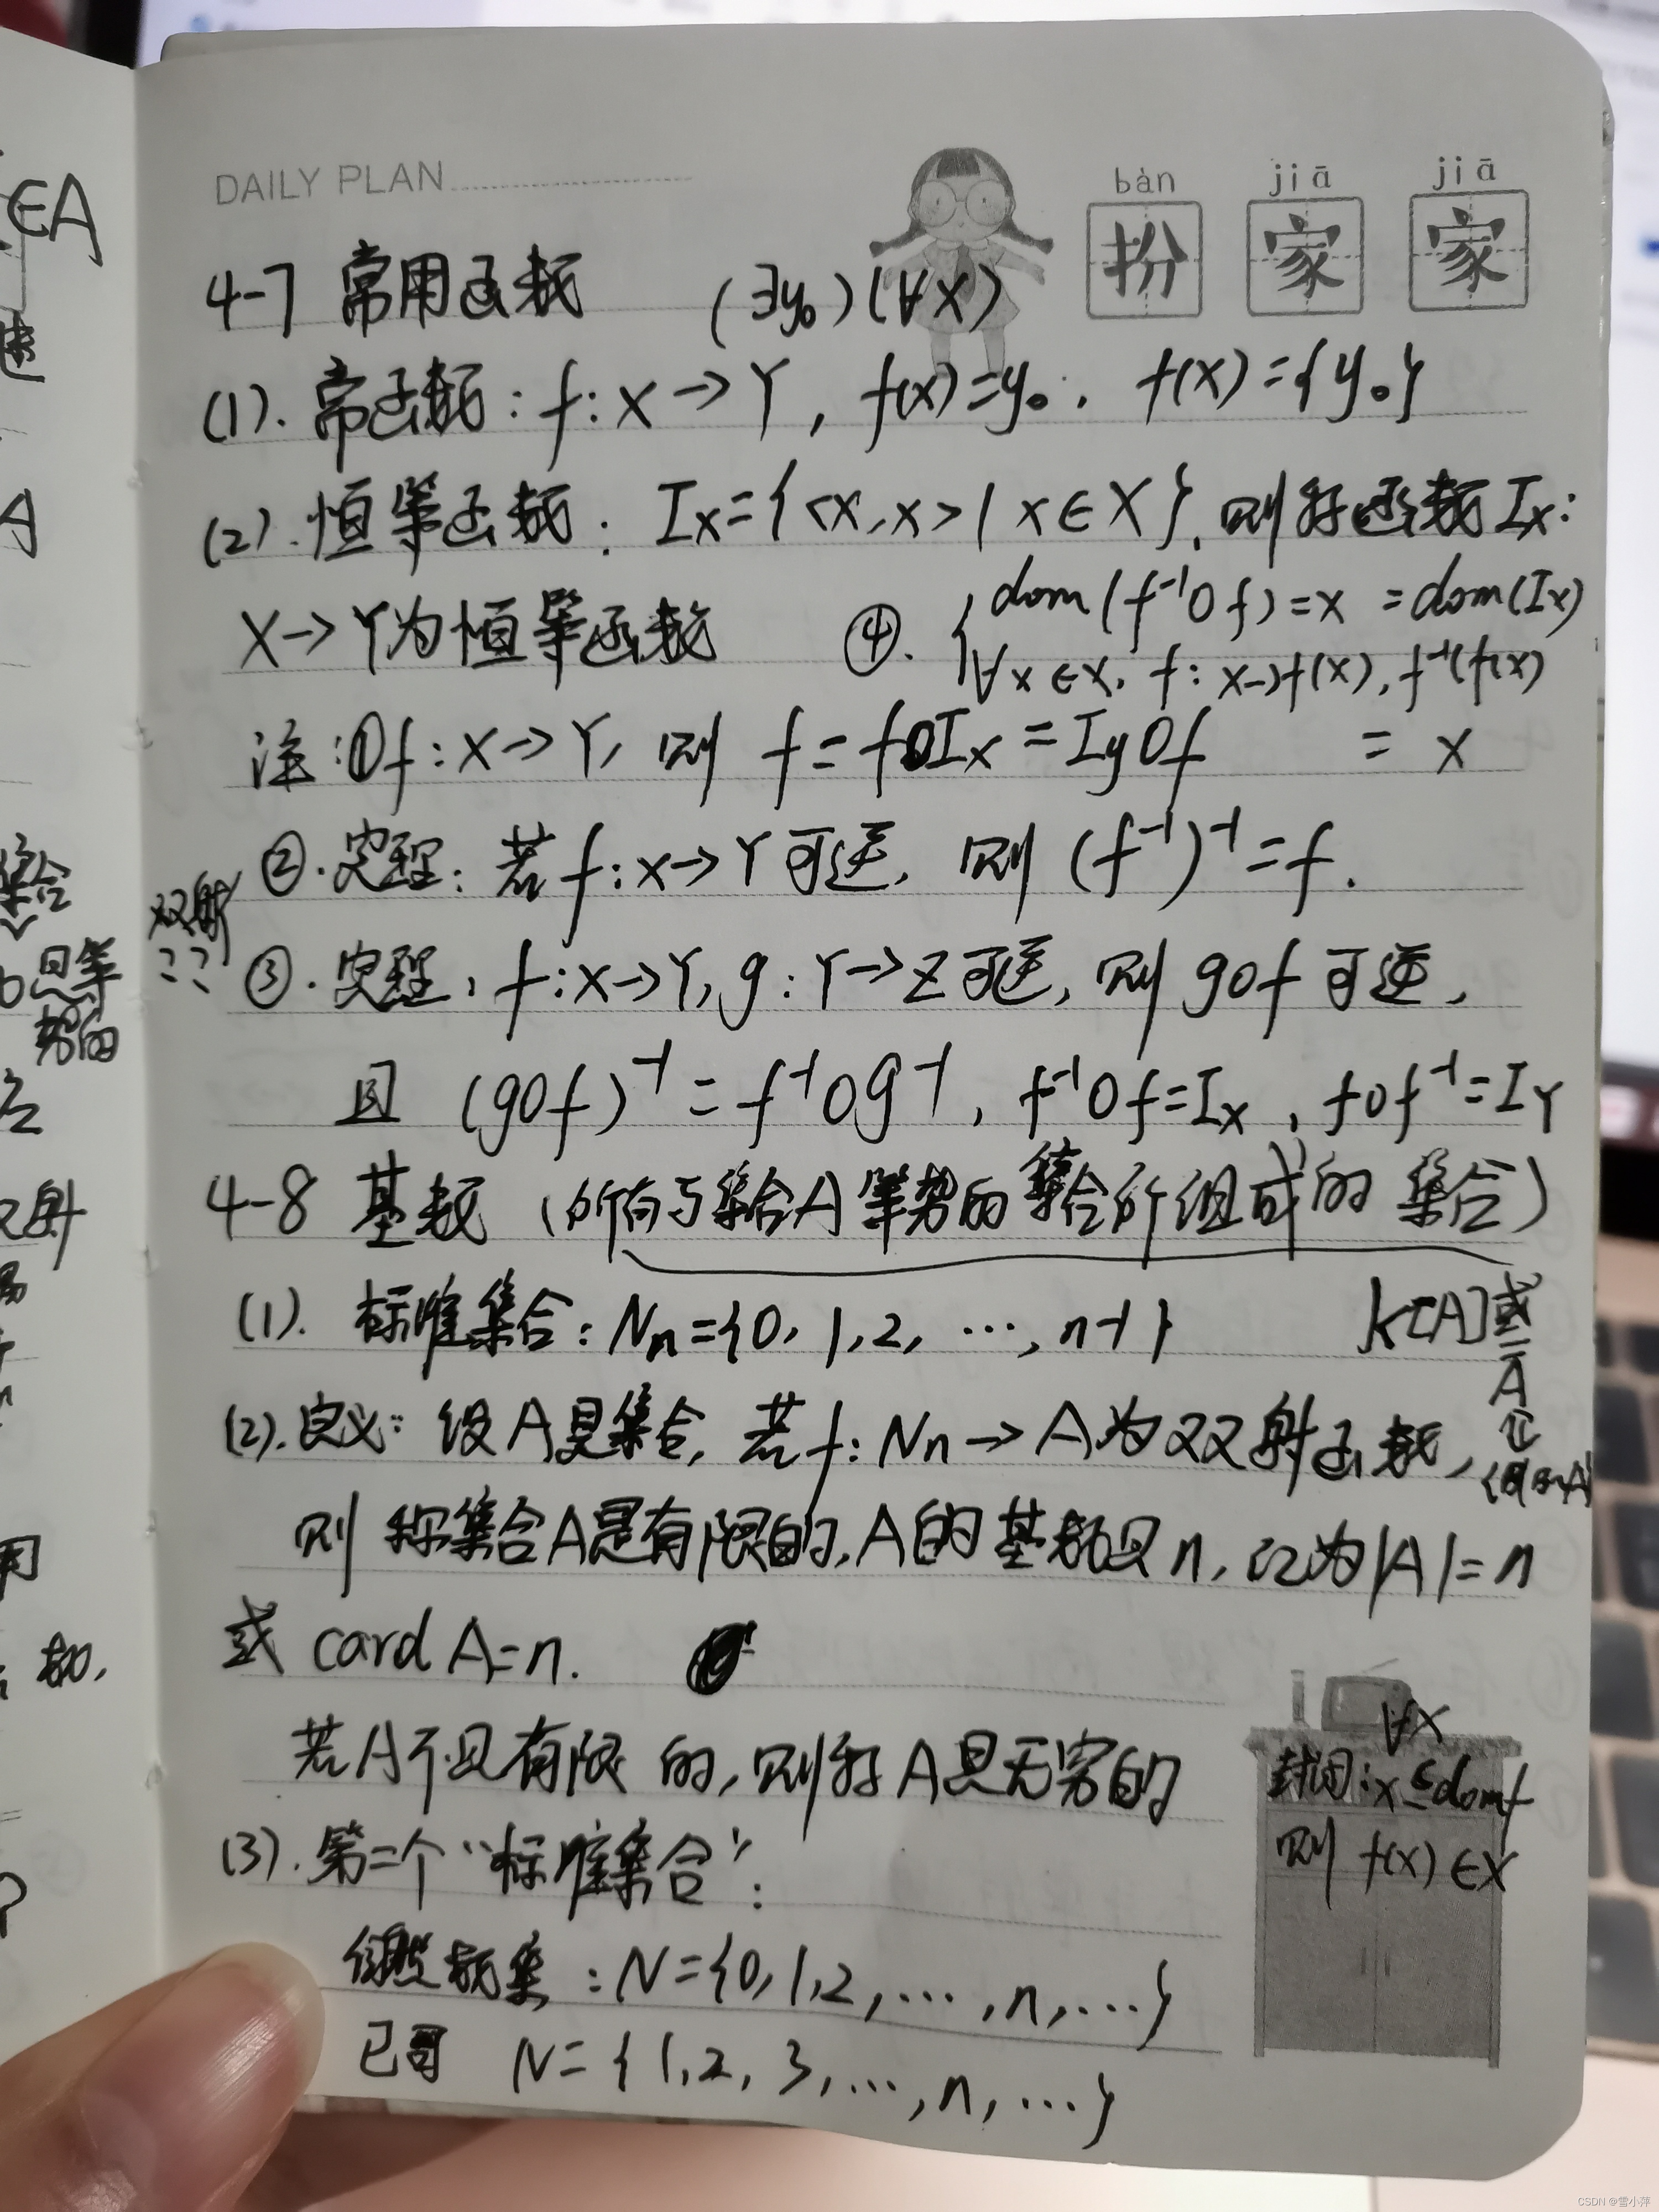 DAILY PLAN
bàn jiā jiā
扮家家
4-7 常用函数 (∃y₀)(∀x)
(1). 常函数: f: X→Y, f(x)=y₀. f(X)={y₀}
(2). 恒等函数: Ix={<x,x>|x∈X}, 则称函数Ix:
X→Y为恒等函数
④. { dom(f⁻¹Of)=X =dom(Ix)
∀x∈X, f: x→f(x), f⁻¹(f(x))
= x
注:①f: X→Y, 则 f=fOIx=IyOf
②.定理: 若f: X→Y可逆, 则 (f⁻¹)⁻¹=f.
双射
③.定理, f: X→Y, g: Y→Z可逆, 则 gOf 可逆,
且 (gOf)⁻¹=f⁻¹Og⁻¹, f⁻¹Of=Ix, fOf⁻¹=IY
4-8 基数 (所有与集合A等势的集合所组成的集合)
K[A]或
A
(1). 标准集合: Nn={0, 1, 2, …, n-1}
(2).定义: 设A是集合, 若f: Nn→A为双射函数,
则称集合A是有限的, A的基数是n, 记为|A|=n
或 card A=n.
若A不是有限的, 则称A是无穷的
∀x
封闭: x⊆domf
则 f(x)∈X
(3).第二个“标准集合”:
自然数集: N={0,1,2,…,n,…}
N={1,2,3,…,n,…}
∈A
A
集合
等
势的
双射
CSDN @雪小萍